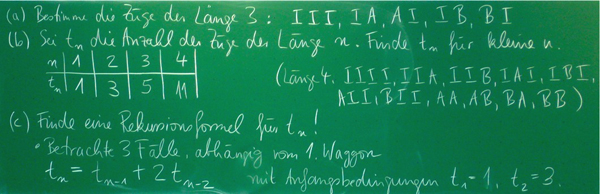 (a) Bestimme die Züge der Länge 3: III, IA, AI, IB, BI
(b) Sei tₙ die Anzahl der Züge der Länge n. Finde tₙ für kleine n.
n | 1 | 2 | 3 | 4
tₙ | 1 | 3 | 5 | 11
(Länge 4. IIII, IIA, IIB, IAI, IBI,
AII, BII, AA, AB, BA, BB)
(c) Finde eine Rekursionsformel für tₙ!
• Betrachte 3 Fälle, abhängig vom 1. Waggon
tₙ = tₙ₋₁ + 2 tₙ₋₂ mit Anfangsbedingungen t₁ = 1, t₂ = 3